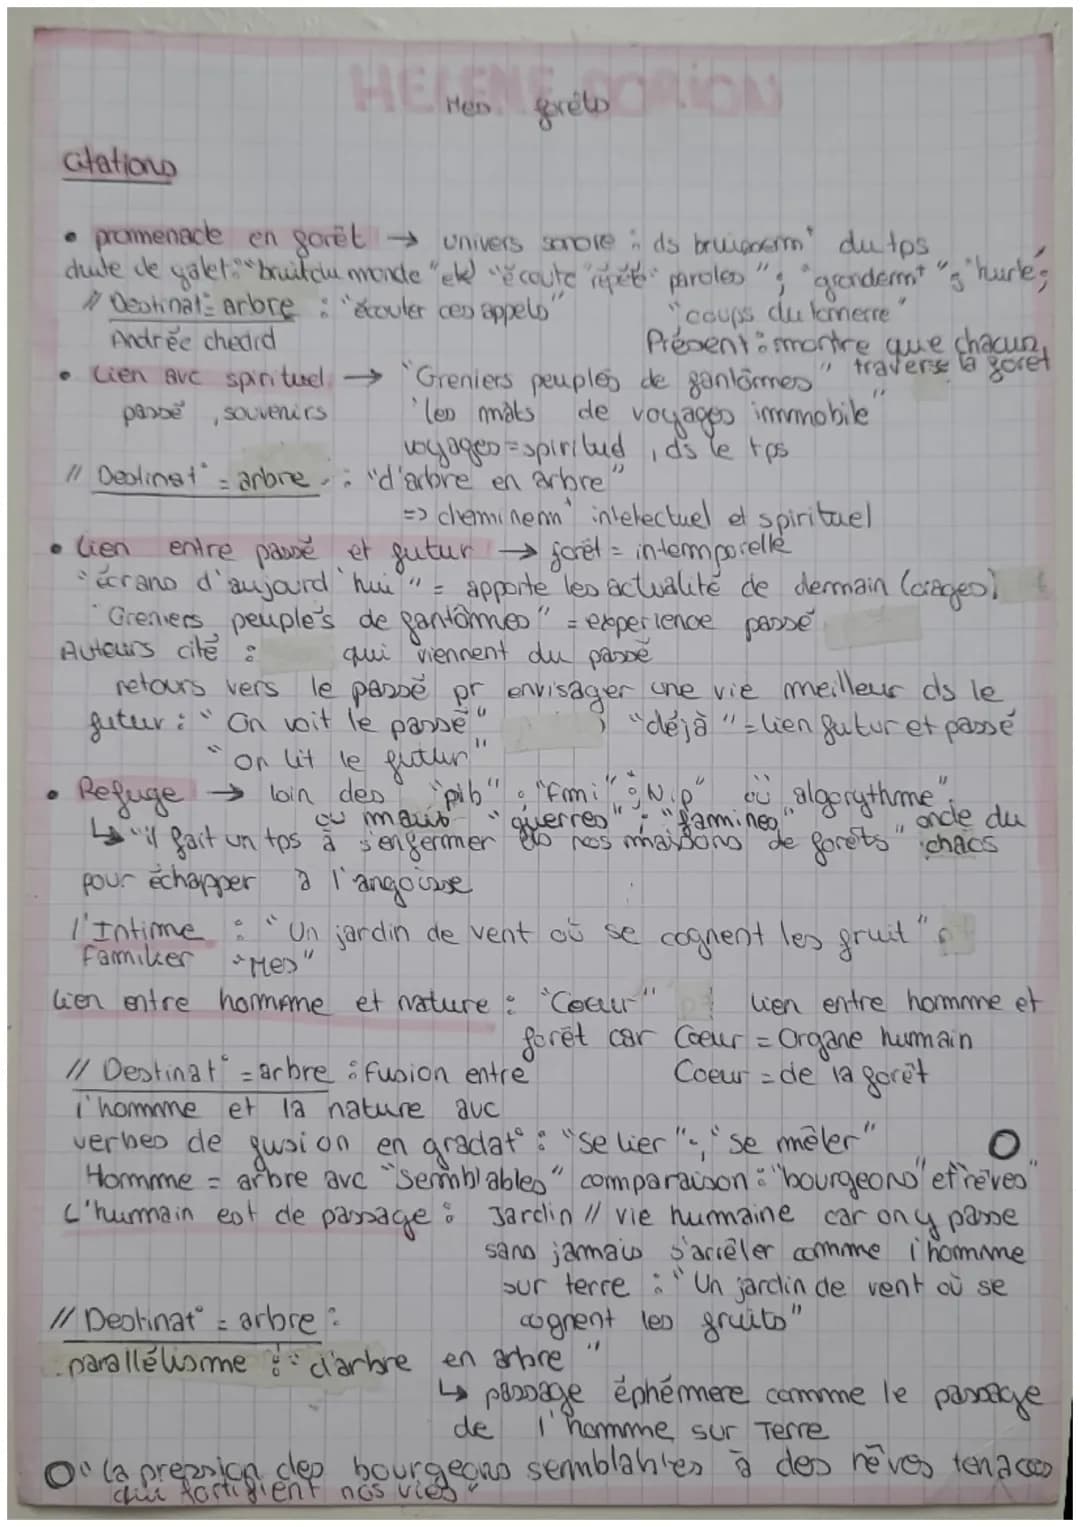 HELENE DORION
Mes forêts
Citations
• promenade en forêt → univers sonore : ds bruissem^t du tps
chute de galet : "bruit du monde" "écoute" "répète" paroles" ; "grondem^t" ; "hurle" ;
// Destinat° = arbre : "écouter ces appels" "coups du tonnerre"
Andrée chedid Présent : montre que chacun
traverse la foret
• Lien avc spirituel → "Greniers peuplés de fantômes"
passé, souvenirs "les mâts de voyages immobile"
voyages = spirituel, ds le tps
// Destinat° = arbre : "d'arbre en arbre"
=> cheminem^t intelectuel et spirituel
• Lien entre passé et futur → forêt = intemporelle
"écrans d'aujourd'hui" = apporte les actualité de demain (orages)
"Greniers peuplés de fantômes" = experience passé
Auteurs cité : qui viennent du passé
retours vers le passé pr envisager une vie meilleur ds le
futur : "On voit le passé" "déjà" = lien futur et passé
"on lit le futur"
• Refuge → loin des "pib" ; "fmi" ; "Nip" où "algorythme",
ou mais "guerres" ; "famines" onde du
↳ "il fait un tps à s'enfermer ds nos maisons de forêts" chaos
pour échapper à l'angoisse
l'Intime : "Un jardin de vent où se cognent les fruit"
familier "Mes"
Lien entre homme et nature : "Coeur" lien entre homme et
forêt car Coeur = Organe humain
// Destinat° = arbre : fusion entre Coeur = de la forêt
l'homme et la nature avc
verbes de fusion en gradat° : "se lier" ; "se mêler" O
Homme = arbre avc "Semblables" comparaison : "bourgeons" et "rêves"
L'humain est de passage : Jardin // vie humaine car on y passe
sans jamais s'arrêter comme l'homme
sur terre : "Un jardin de vent où se
// Destinat° = arbre : cognent les fruits"
parallélisme : "d'arbre en arbre"
↳ passage éphémere comme le passage
de l'homme sur Terre
O "la pression des bourgeons semblables à des rêves tenaces
qui fortifient nos vies"